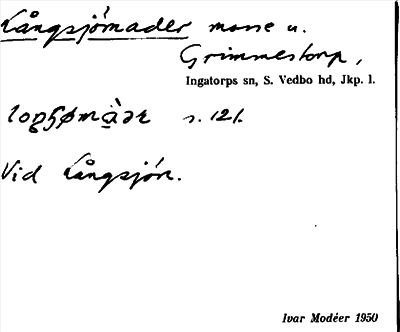 Långsjömader mosse u.
Grimmestorp,
Ingatorps sn, S. Vedbo hd, Jkp. l.
s. 121.
Vid Långsjön.
Ivar Modéer 1950